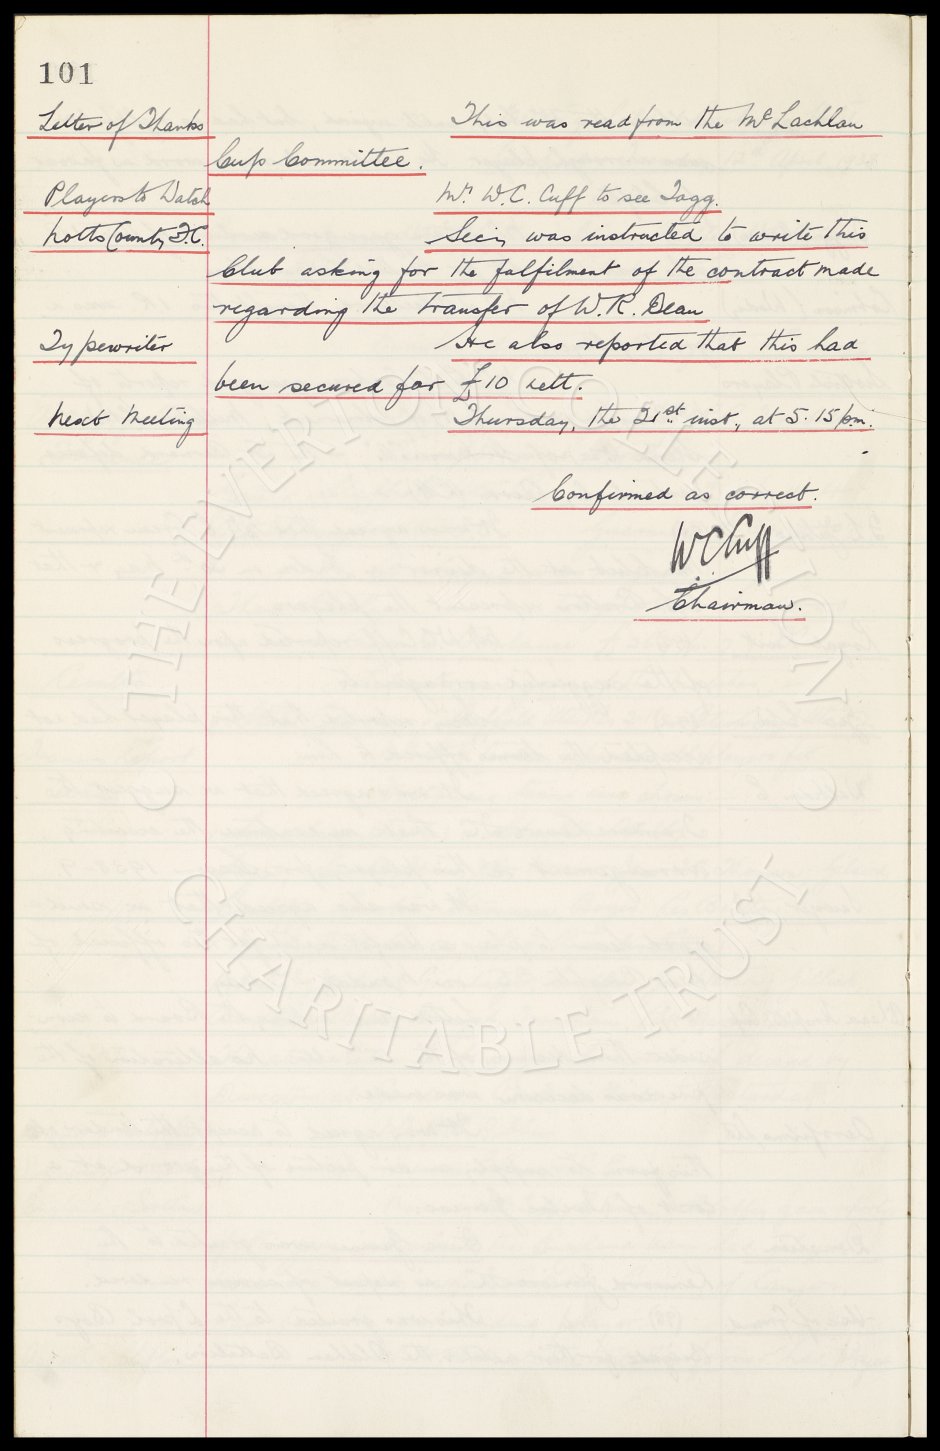 101
Letter of Thanks This was read from the McLachlan
Cup Committee.
Players to Watch Mr. W.C. Cuff to see Tagg.
Notts County F.C. Secy. was instructed to write this
Club asking for the fulfilment of the contract made
regarding the transfer of W.R. Dean
Typewriter He also reported that this had
been secured for £10 nett.
Next Meeting Thursday, the 21st inst., at 5.15 p.m.
Confirmed as correct.
W C Cuff
Chairman.
© THE EVERTON COLLECTION ©
CHARITABLE TRUST